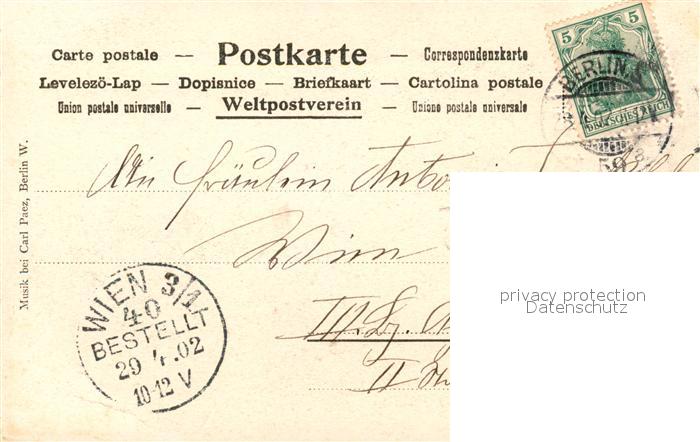 Carte postale — Postkarte — Correspondenzkarte
Levelezö-Lap — Dopisnice — Briefkaart — Cartolina postale
Union postale universelle — Weltpostverein — Unione postale universale
5 5
DEUTSCHES REICH
BERLIN
An Fräulein
Wien
III. Bz.
II
Musik bei Carl Paez, Berlin W.
WIEN 3/1
40
BESTELLT
29 4 02
10-12 V
privacy protection
Datenschutz